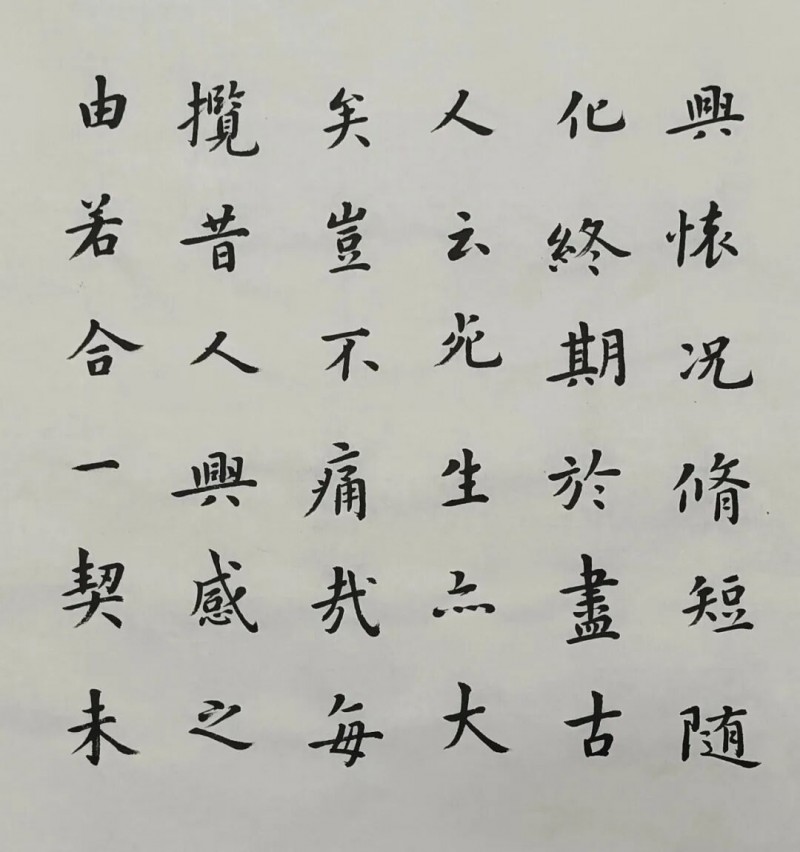 興懐况脩短随
化終期於盡古
人云死生亦大
矣豈不痛哉每
攬昔人興感之
由若合一契未